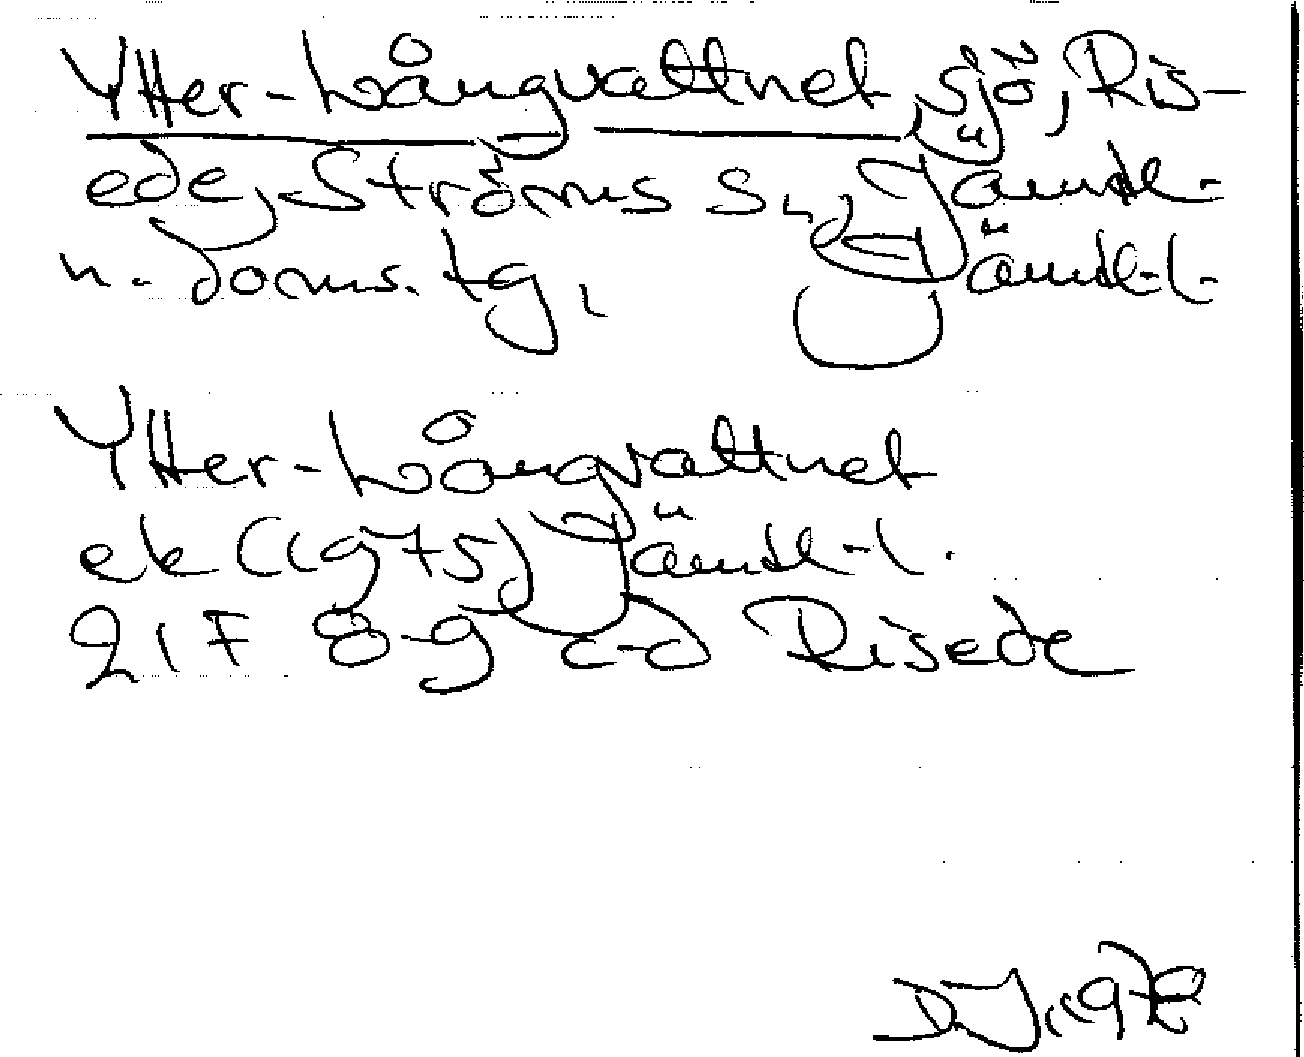 Ytter-Långvattnet, sjö, Ris-
ede, Ströms s, Jämtl.
n. doms. tg, Jämtl. l.
Ytter-Långvattnet
ek (1975) Jämtl. l.
21F 8-9 c-d Risede
DJ 1978